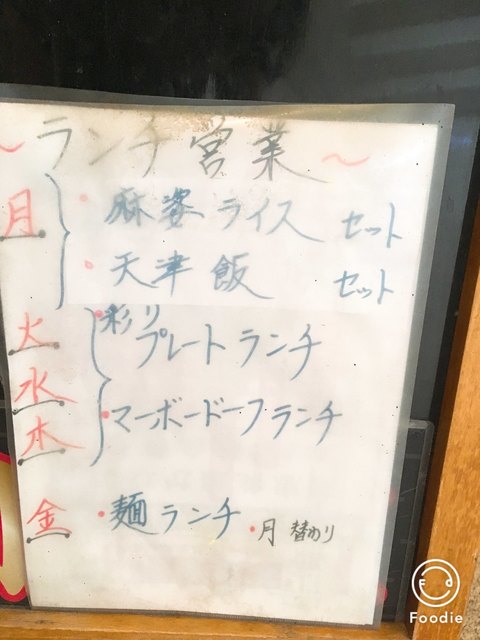 ～ランチ営業～
月
・麻婆ライス セット
・天津飯 セット
火
水
木
・彩り
プレートランチ
・マーボードーフランチ
金
・麺ランチ ・月替わり
Foodie